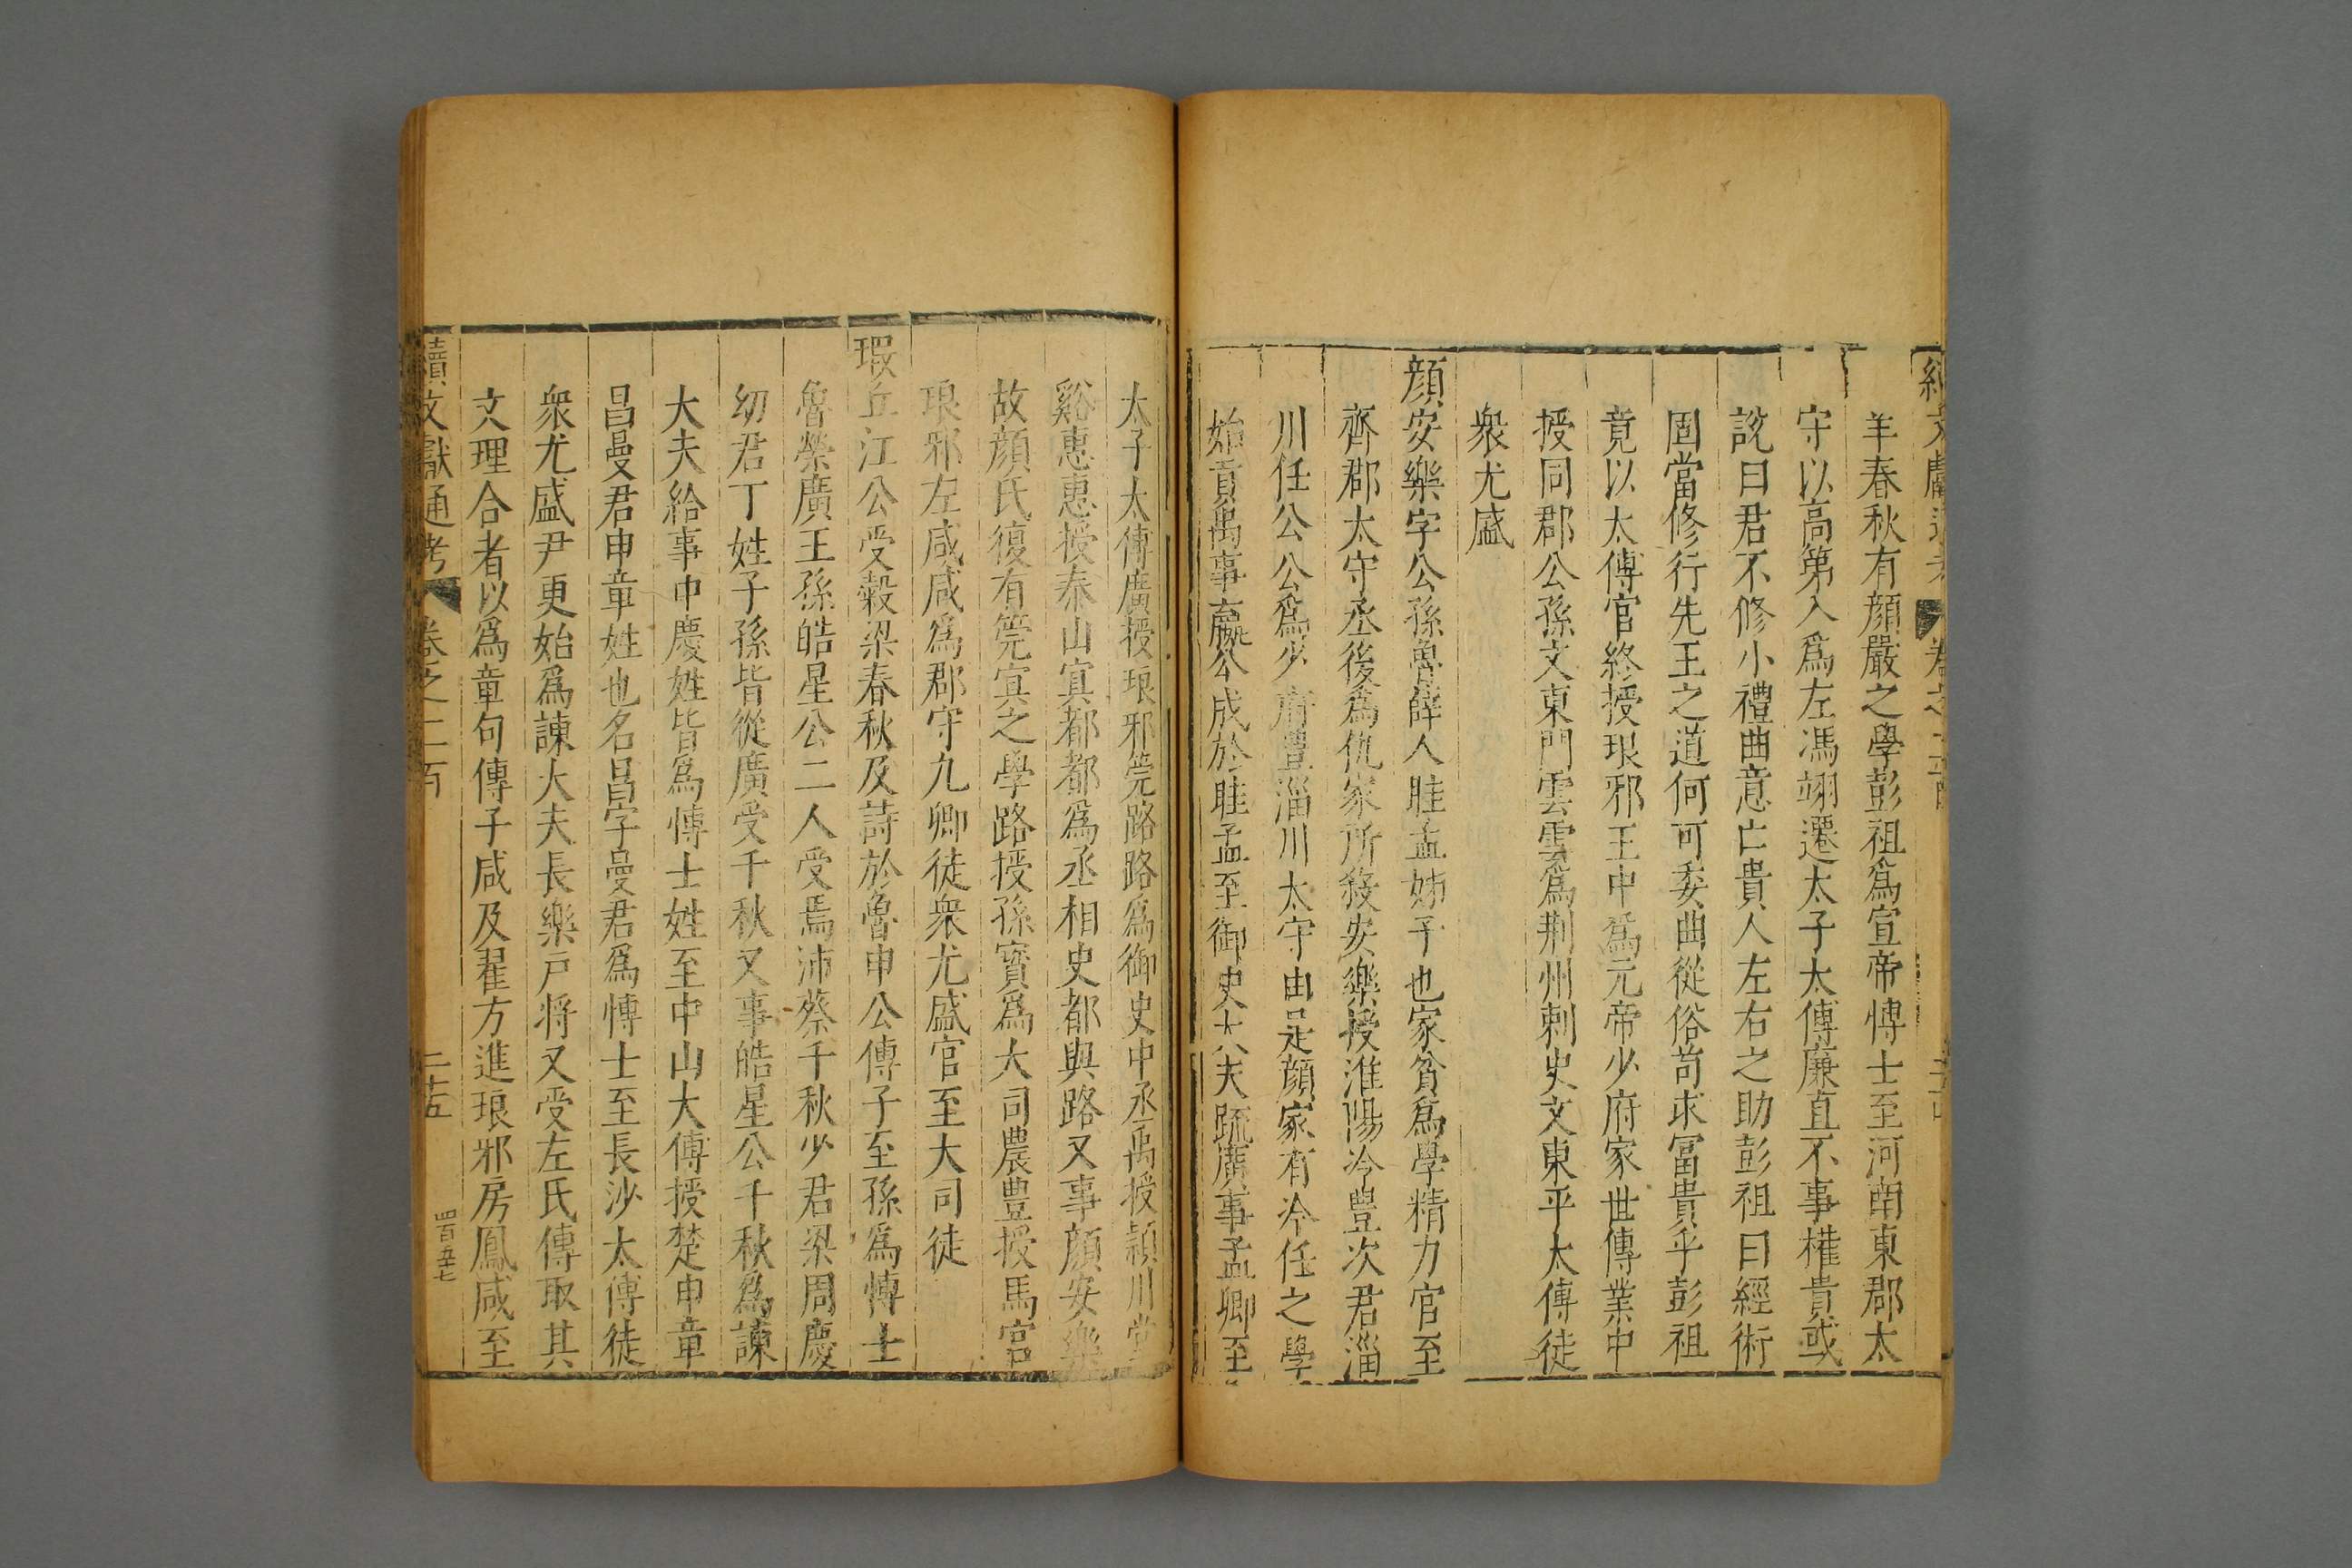 續文獻通考 卷之二百
羊春秋有顔嚴之學彭祖爲宣帝博士至河南東郡太
守以高第入爲左馮翊遷太子太傅廉直不事權貴或
說曰君不修小禮曲意亡貴人左右之助彭祖曰經術
固當修行先王之道何可委曲從俗苟求冨貴乎彭祖
竟以太傅官終授琅邪王中爲元帝少府家世傳業中
授同郡公孫文東門雲雲爲荆州刺史文東平太傅徒
衆尤盛
顔安樂字公孫魯薛人眭孟姊子也家貧爲學精力官至
齊郡太守丞後爲仇家所殺安樂授淮陽泠豊次君淄
川任公公爲少府豊淄川太守由是顔家有泠任之學
始貢禹事嬴公成於眭孟至御史大夫疏廣事孟卿至
太子太傅廣授琅邪筦路路爲御史中丞禹授潁川堂
谿惠惠授泰山寘都都爲丞相史都與路又事顔安樂
故顔氏復有筦寘之學路授孫寳爲大司農豊授馬宫
琅邪左咸咸爲郡守九卿徒衆尤盛官至大司徒
瑕丘江公受穀梁春秋及詩於魯申公傳子至孫爲博士
魯榮廣王孫皓星公二人受焉沛蔡千秋少君梁周慶
幼君丁姓子孫皆從廣受千秋又事皓星公千秋爲諫
大夫給事中慶姓皆爲博士姓至中山大傅授楚申章
昌曼君申章姓也名昌字曼君爲博士至長沙太傅徒
衆尤盛尹更始爲諫大夫長樂户将又受左氏傳取其
文理合者以爲章句傳子咸及翟方進琅邪房鳳咸至
續文獻通考 卷之二百 二十五 四百五十七